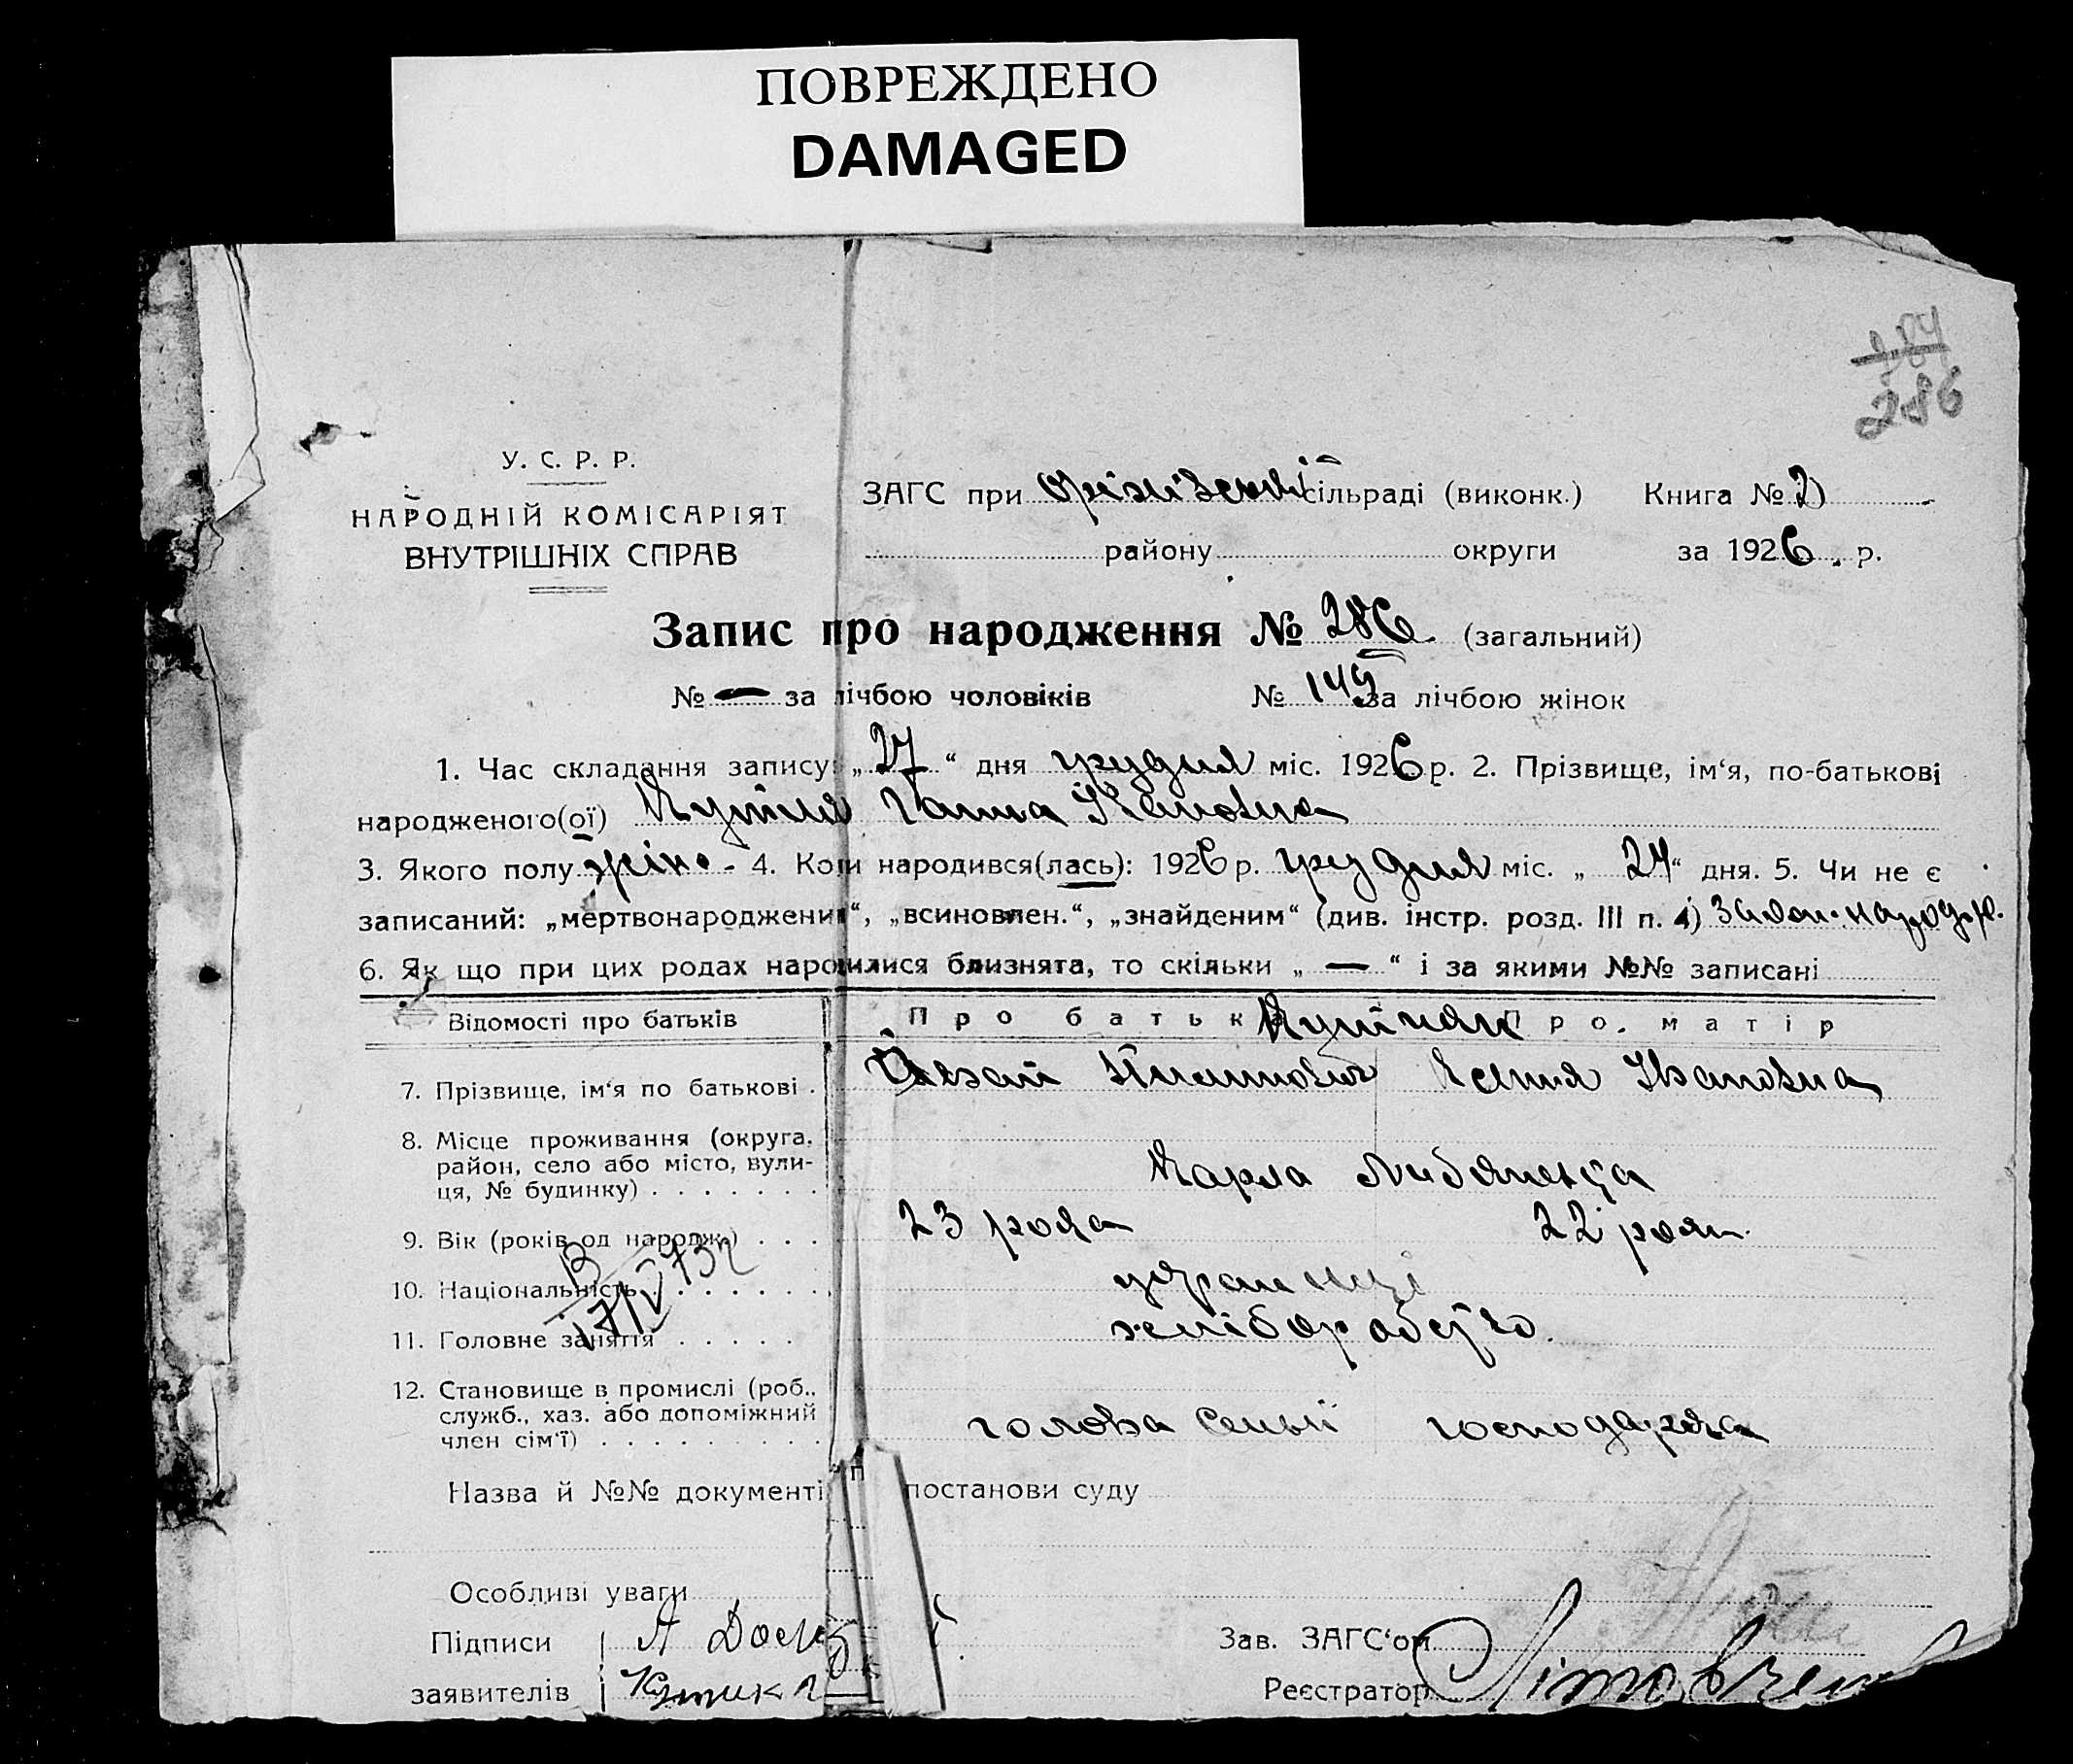 ПОВРЕЖДЕНО
DAMAGED
286
У. С. Р. Р.
НАРОДНІЙ КОМІСАРІЯТ
ВНУТРІШНІХ СПРАВ
ЗАГС при сільраді (виконк.) Книга № 2
району округи за 1926 р.
Запис про народження № 286 (загальний)
№ — за лічбою чоловіків № 149 за лічбою жінок
1. Час складання запису: „27“ дня грудня міс. 1926 р. 2. Прізвище, ім‘я, по-батькові
народженого(ої) Ганна
3. Якого полу жіно. 4. Коли народився(лась): 1926 р. грудня міс. „24“ дня. 5. Чи не є
записаний: „мертвонароджений“, „всиновлен.“, „знайденим“ (див. інстр. розд. III п. 4)
6. Як що при цих родах народилися близнята, то скільки „—“ і за якими №№ записані
Відомості про батьків Про батька Про матір
7. Прізвище, ім‘я по батькові . Ивановна
8. Місце проживання (округа, район, село або місто, вулиця, № будинку) . . . . . . . Карла Либкнехта
9. Вік (років од народж.) . . . 23 рока 22 роки
10. Національність . . . . . . . українці
11. Головне заняття . . . . . хліборобство
12. Становище в промислі (роб., служб., хаз. або допоміжний член сім‘ї) . . . . . . . . . голова семьї господарка
Назва й №№ документі постанови суду
Особливі уваги
Підписи Зав. ЗАГС‘ом
заявителів Реєстратор